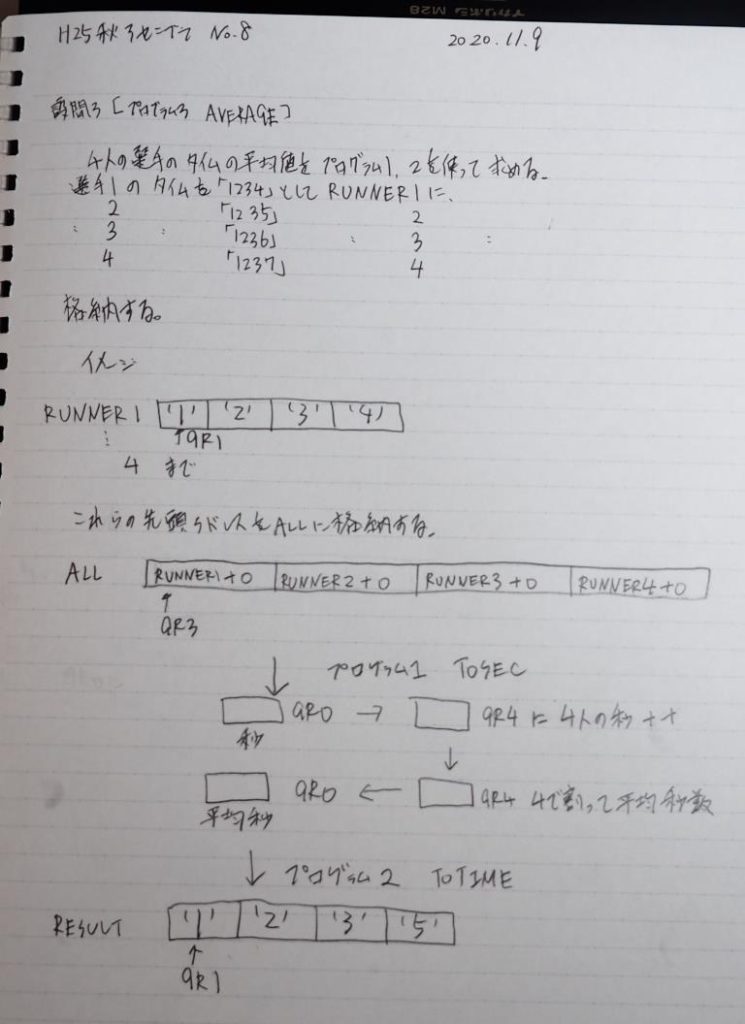 H25秋 アセンブラ No.8
2020.11.9
設問3 [プログラム3 AVERAGE]
4人の選手のタイムの平均値をプログラム1, 2を使って求める。
選手1のタイムを「1234」としてRUNNER1に、
2 「1235」 2
: 3 : 「1236」 : 3 :
4 「1237」 4
格納する。
イメージ
RUNNER1 '1' '2' '3' '4'
↑GR1
:
4 まで
これらの先頭アドレスをALLに格納する。
ALL RUNNER1+0 RUNNER2+0 RUNNER3+0 RUNNER4+0
↑
GR3
↓ プログラム1 TOSEC
GR0 → GR4 に 4人の秒 ++
秒 ↓
GR0 ← GR4 4で割って平均秒数
平均秒
↓ プログラム2 TOTIME
RESULT '1' '2' '3' '5'
↑
GR1